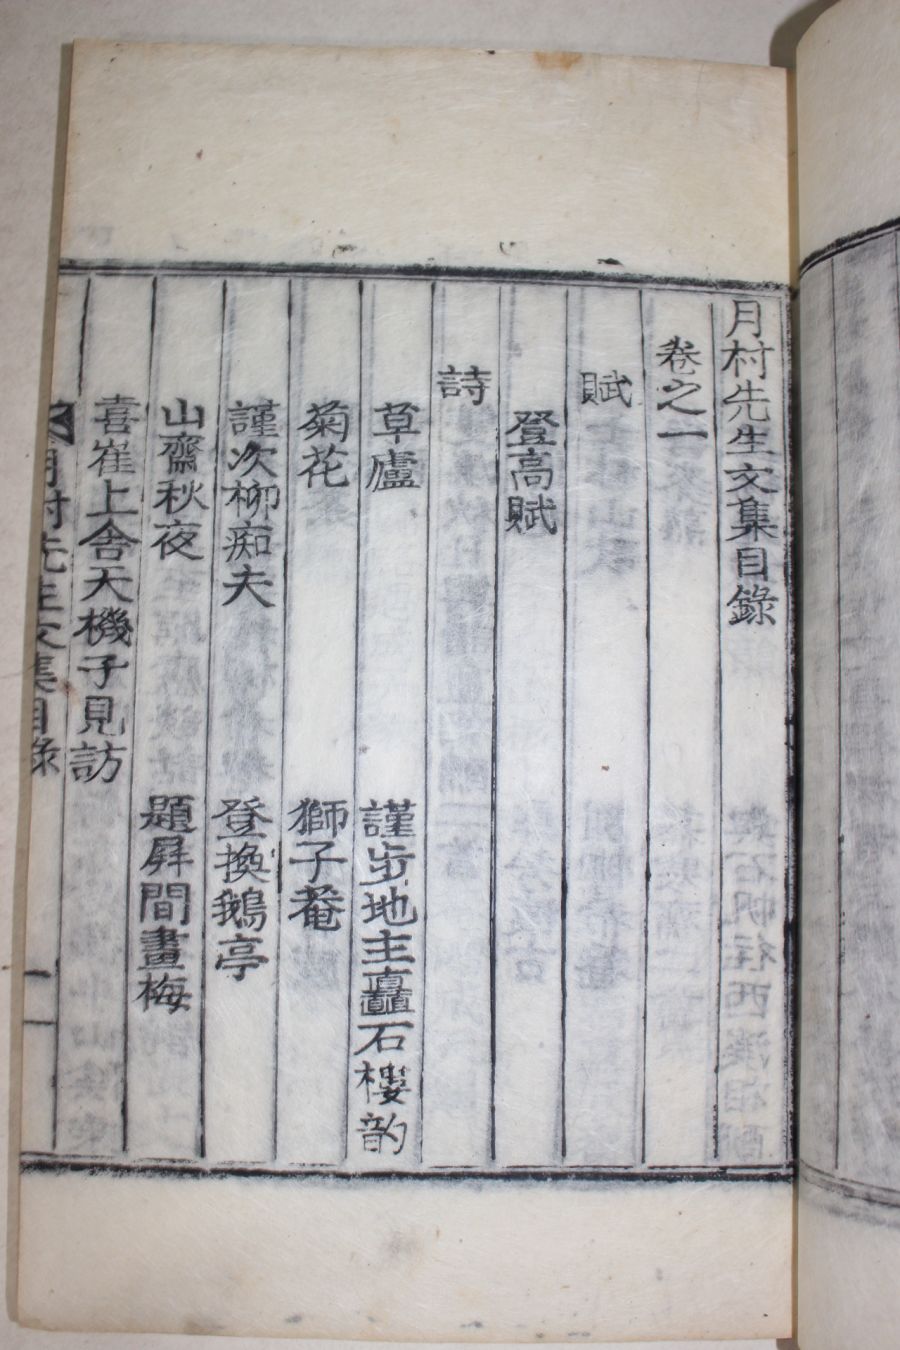 月村先生文集目錄
卷之一
賦
登高賦
詩
草廬
謹步地主矗石樓韵
菊花
獅子菴
謹次柳痴夫
登換鵝亭
山齋秋夜
題屛間畫梅
喜崔上舍天機子見訪
月村先生文集目錄
一